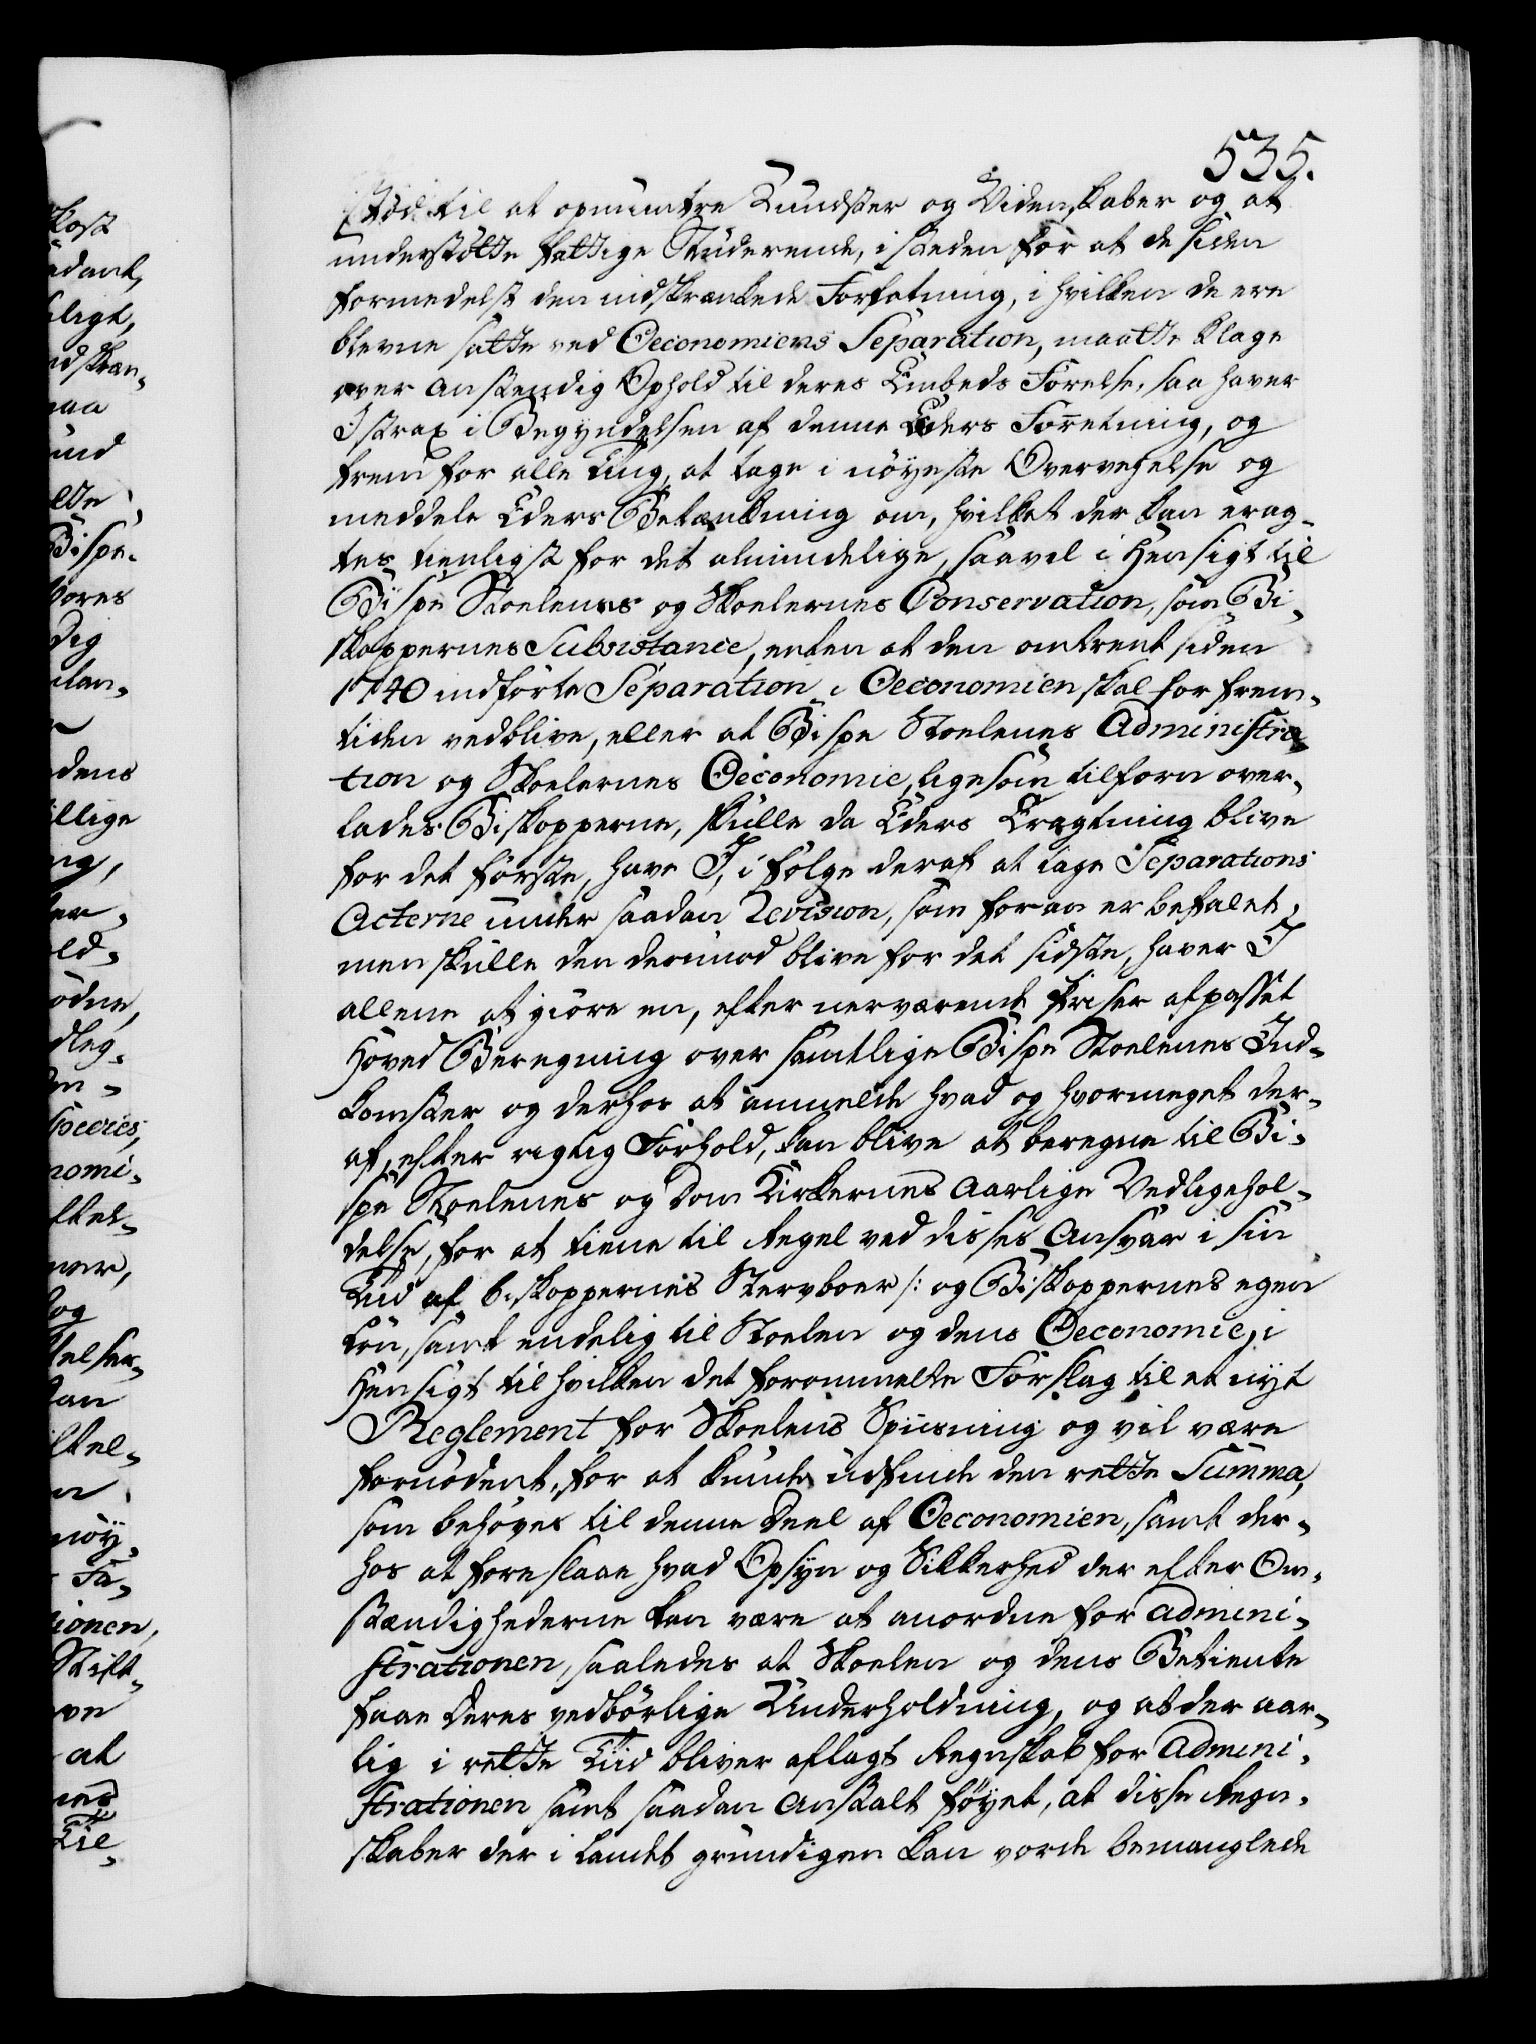 535.
Stöd til at opmuntre Kundster og Videnskaber og at
understötte fattige Studerende, i steden for at de siden
formedelst den indskrænkede Forfatning, i hvilken de ere
blevne satte ved Oeconomiens Separation, maatte klage
over anstændig Ophold til deres Embeds Förelse, saa haver
I strax i Begyndelsen af denne Eders Forretning, og
frem for alle Ting, at tage i nöyeste Overvejelse og
meddele Eders Betænkning om, hvilket der kan erag-
tes tienligst for det almindelige, saavel i Hensigt til
Bispe Stoelenes og Skoelernes Conservation, som Bi-
skoppernes Subsistance, enten at den omtrent siden
1740 indförte Separation i Oeconomien skal for frem-
tiden vedblive, eller at Bispe Stoelenes Administra-
tion og Skoelernes Oeconomie, ligesom tilforn over-
lades Biskopperne, skulle da Eders Eragtning blive
for det förste, have I, i fölge deraf at tage Separations
Acterne under saadan Revision, som foran er befalet,
men skulle den derimod blive for det sidste, haver I
allene at giöre en, efter nærværende Priser afpasset
Hoved Beregning over samtlige Bispe Stoelenes Ind-
komster og derhos at anmelde hvad og hvormeget der-
af, efter rigtig Forhold, kan blive at beregne til Bi-
spe Stoelenes og Dom Kirkernes aarlige Vedligehol-
delse, for at tiene til Regel ved disses Ansvar i sin
Tiid af Biskoppernes Stervboer /: og Biskoppernes egen
Lön, samt endelig til Skoelen og dens Oeconomie, i
Hensigt til hvilken det forommelte Forslag til et nyt
Reglement for Skoelens Spiisning og vil være
fornödent, for at kunde udfinde den rette Summa,
som behöves til denne Deel af Oeconomien, samt der-
hos at foreslaae hvad Opsyn og Sikkerhed der efter Om-
stændighederne kan være at anordne for Admini-
strationen, saaledes at Skoelen og dens Betiente
faae deres vedbörlige Underholdning, og at der aar-
lig i rette Tiid bliver aflagt Regnskab for Admini-
strationen samt saadan Anstalt föyet, at disse Regn-
skaber der i Landet grundigen kan vorde bemanglede